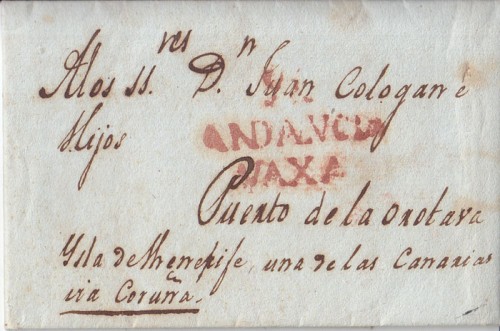 A los SS.res D.n Juan Cologan é
Hijos
ANDALUCIA
VAXA
Puerto de la Orotava
Ysla de Thenerife, una de las Canarias
via Coruña.